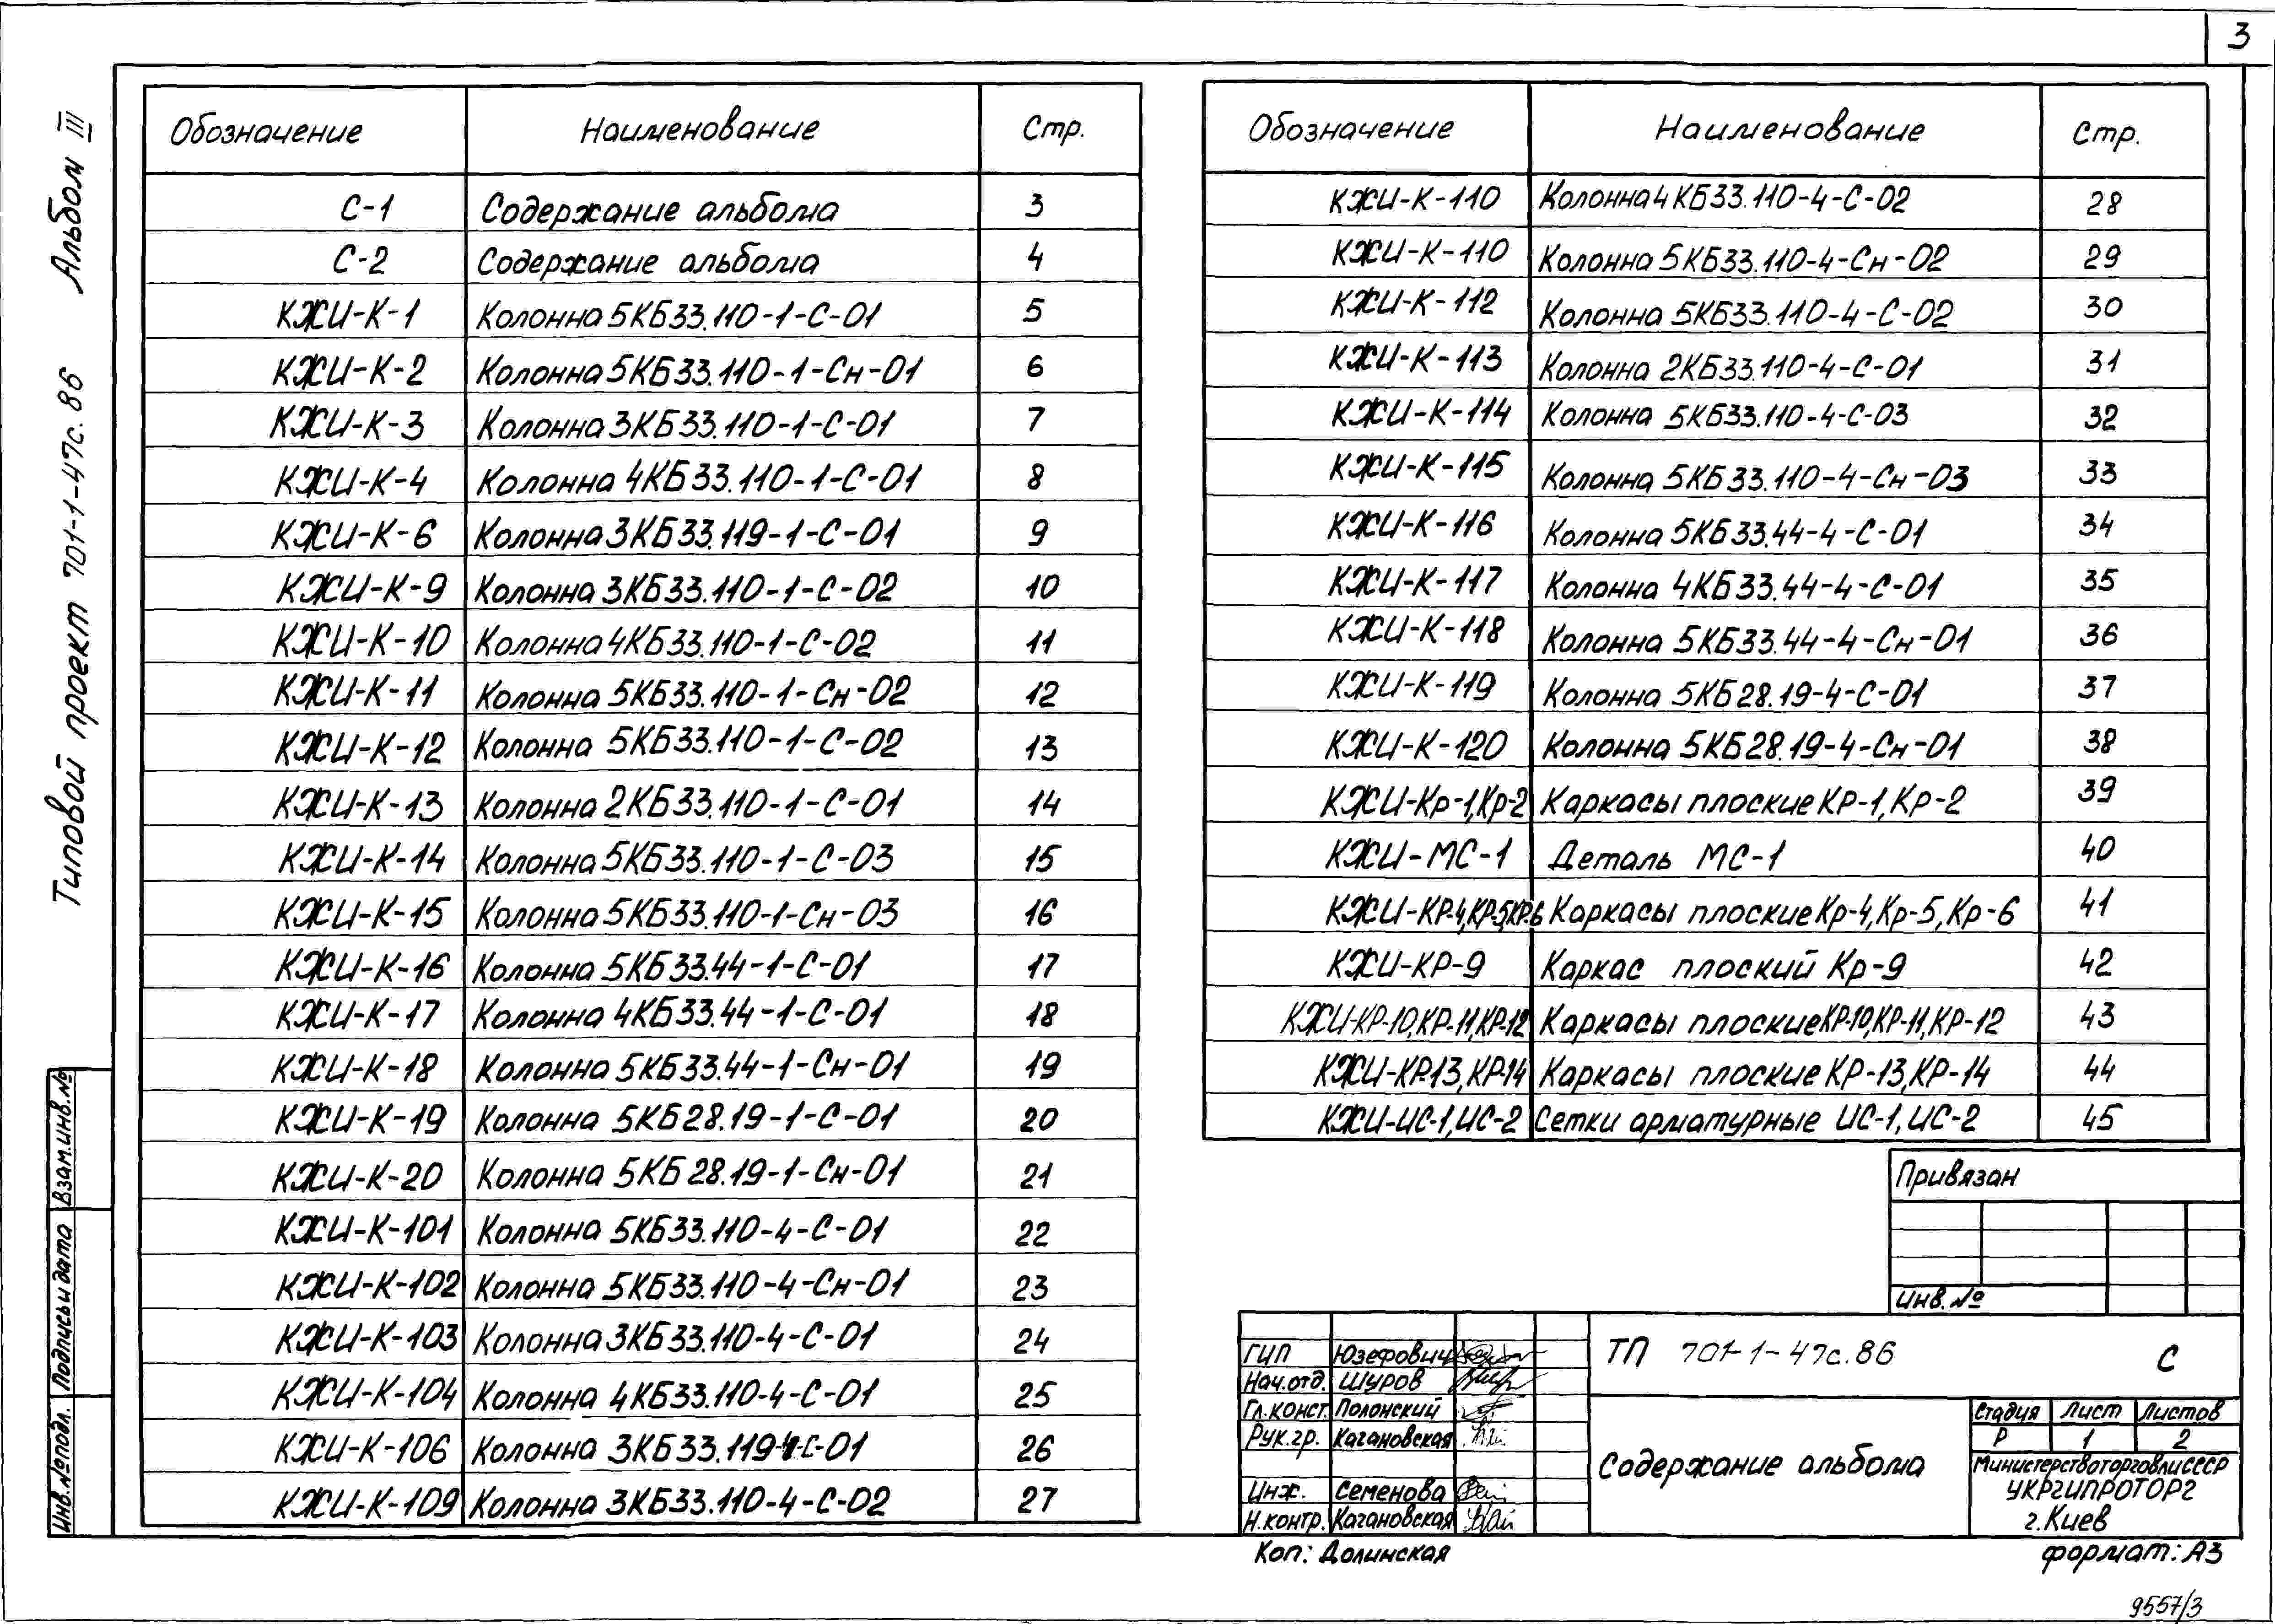 3
Альбом III
Типовой проект 701-1-47с.86
Обозначение Наименование Стр.
С-1 Содержание альбома 3
С-2 Содержание альбома 4
КЖИ-К-1 Колонна 5КБ33.110-1-С-01 5
КЖИ-К-2 Колонна 5КБ33.110-1-Сн-01 6
КЖИ-К-3 Колонна 3КБ33.110-1-С-01 7
КЖИ-К-4 Колонна 4КБ33.110-1-С-01 8
КЖИ-К-6 Колонна 3КБ33.119-1-С-01 9
КЖИ-К-9 Колонна 3КБ33.110-1-С-02 10
КЖИ-К-10 Колонна 4КБ33.110-1-С-02 11
КЖИ-К-11 Колонна 5КБ33.110-1-Сн-02 12
КЖИ-К-12 Колонна 5КБ33.110-1-С-02 13
КЖИ-К-13 Колонна 2КБ33.110-1-С-01 14
КЖИ-К-14 Колонна 5КБ33.110-1-С-03 15
КЖИ-К-15 Колонна 5КБ33.110-1-Сн-03 16
КЖИ-К-16 Колонна 5КБ33.44-1-С-01 17
КЖИ-К-17 Колонна 4КБ33.44-1-С-01 18
КЖИ-К-18 Колонна 5КБ33.44-1-Сн-01 19
КЖИ-К-19 Колонна 5КБ28.19-1-С-01 20
КЖИ-К-20 Колонна 5КБ28.19-1-Сн-01 21
КЖИ-К-101 Колонна 5КБ33.110-4-С-01 22
КЖИ-К-102 Колонна 5КБ33.110-4-Сн-01 23
КЖИ-К-103 Колонна 3КБ33.110-4-С-01 24
КЖИ-К-104 Колонна 4КБ33.110-4-С-01 25
КЖИ-К-106 Колонна 3КБ33.119-4-С-01 26
КЖИ-К-109 Колонна 3КБ33.110-4-С-02 27
Обозначение Наименование Стр.
КЖИ-К-110 Колонна 4КБ33.110-4-С-02 28
КЖИ-К-110 Колонна 5КБ33.110-4-Сн-02 29
КЖИ-К-112 Колонна 5КБ33.110-4-С-02 30
КЖИ-К-113 Колонна 2КБ33.110-4-С-01 31
КЖИ-К-114 Колонна 5КБ33.110-4-С-03 32
КЖИ-К-115 Колонна 5КБ33.110-4-Сн-03 33
КЖИ-К-116 Колонна 5КБ33.44-4-С-01 34
КЖИ-К-117 Колонна 4КБ33.44-4-С-01 35
КЖИ-К-118 Колонна 5КБ33.44-4-Сн-01 36
КЖИ-К-119 Колонна 5КБ28.19-4-С-01 37
КЖИ-К-120 Колонна 5КБ28.19-4-Сн-01 38
КЖИ-Кр-1,Кр-2 Каркасы плоские КР-1,Кр-2 39
КЖИ-МС-1 Деталь МС-1 40
КЖИ-КР-4,КР-5,КР-6 Каркасы плоские Кр-4,Кр-5,Кр-6 41
КЖИ-КР-9 Каркас плоский Кр-9 42
КЖИ-КР-10,КР-11,КР-12 Каркасы плоские КР-10,КР-11,КР-12 43
КЖИ-КР-13,КР-14 Каркасы плоские КР-13,КР-14 44
КЖИ-ИС-1,ИС-2 Сетки арматурные ИС-1,ИС-2 45
Привязан
Инв.№
ГИП Юзефович
Нач.отд. Шуров
Гл.конст. Полонский
Рук.гр. Кагановская
Инж. Семенова
Н.контр. Кагановская
ТП 701-1-47с.86 С
Содержание альбома
Стадия Лист Листов
Р 1 2
Министерство торговли СССР
УКРГИПРОТОРГ
г.Киев
Коп: Долинская
формат: А3
9557/3
Взам.инв.№
Подпись и дата
Инв.№ подл.